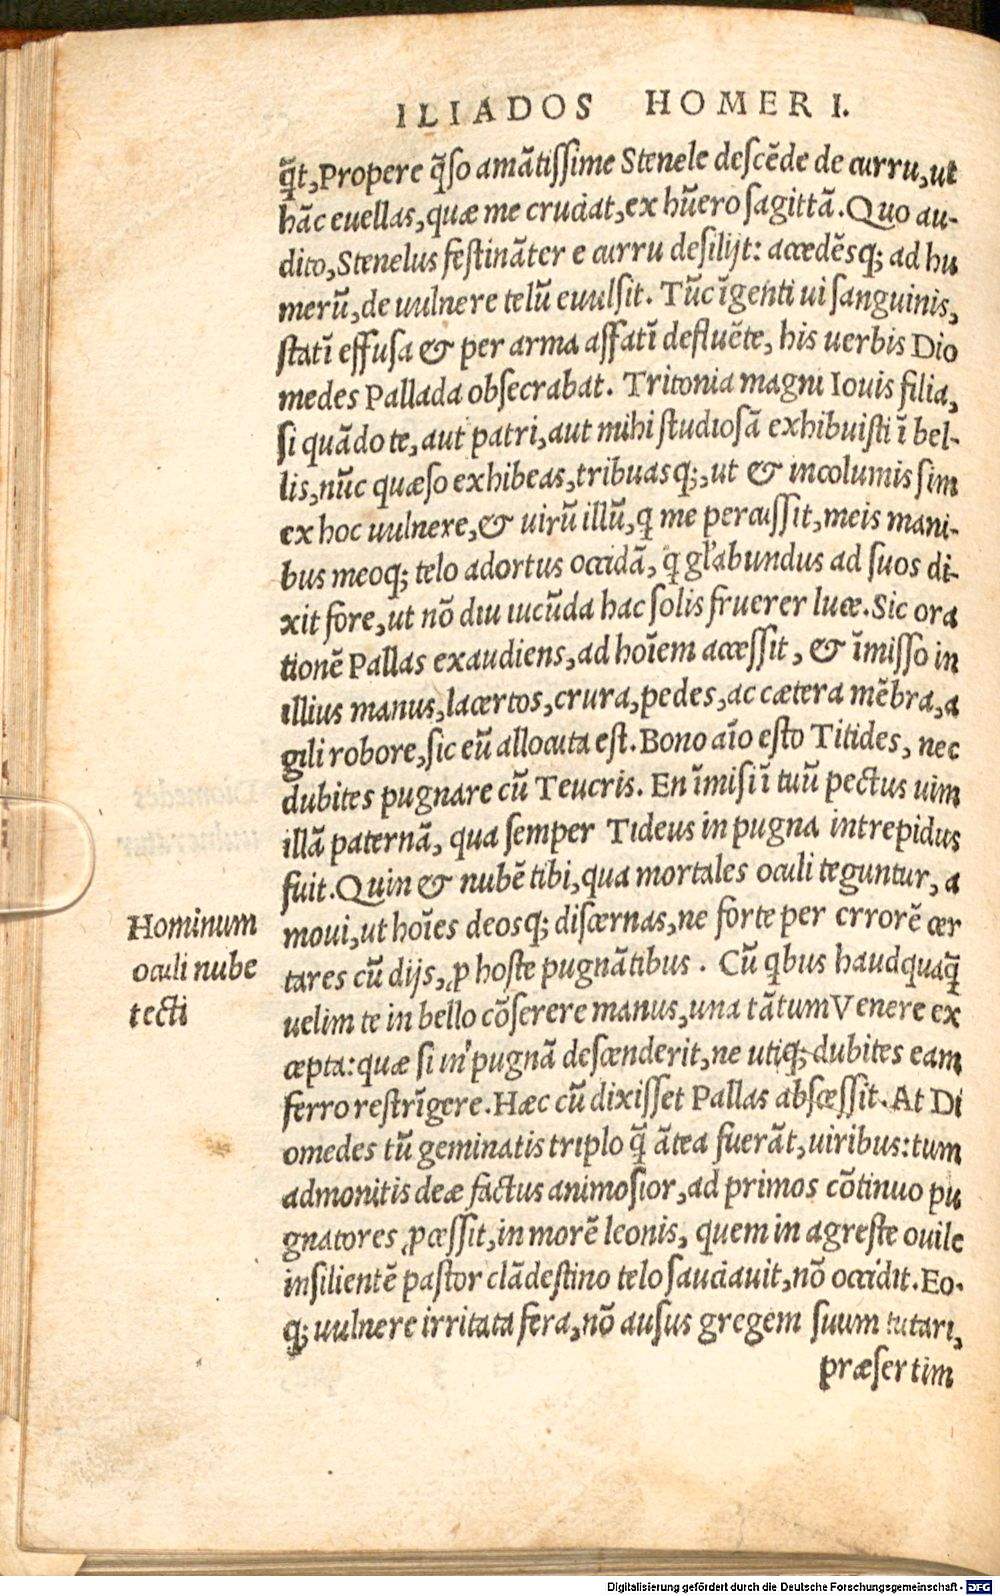 ILIADOS HOMERI.
q̃t, Propere q̃so amãtissime Stenele descẽde de curru, ut
hãc euellas, quæ me cruciat, ex hũero sagittã. Quo au-
dito, Stenelus festinãter e curru desilijt: accedẽsq; ad hu
merũ, de uulnere telũ euulsit. Tũc ĩgenti ui sanguinis,
statĩ effusa & per arma affatĩ defluẽte, his uerbis Dio
medes Pallada obsecrabat. Tritonia magni Iouis filia,
si quãdo te, aut patri, aut mihi studiosã exhibuisti ĩ bel-
lis, nũc quæso exhibeas, tribuasq;, ut & incolumis sim
ex hoc uulnere, & uirũ illũ, q me percussit, meis mani-
bus meoq; telo adortus occidã, q gl'abundus ad suos di-
xit fore, ut nõ diu iucũda hac solis fruerer luce. Sic ora
tionẽ Pallas exaudiens, ad hoĩem accessit, & ĩmisso in
illius manus, lacertos, crura, pedes, ac cætera mẽbra, a
gili robore, sic eũ allocuta est. Bono aĩo esto Titides, nec
dubites pugnare cũ Teucris. En ĩmisi ĩ tuũ pectus uim
illã paternã, qua semper Tideus in pugna intrepidus
fuit. Quin & nubẽ tibi, qua mortales oculi teguntur, a
moui, ut hoĩes deosq; discernas, ne forte per errorẽ cer
tares cũ dijs, ꝓ hoste pugnãtibus. Cũ qbus haudquaq̃
uelim te in bello cõserere manus, una tãtum Venere ex
cepta: quæ si in pugnã descenderit, ne utiq; dubites eam
ferro restrĩgere. Hæc cũ dixisset Pallas abscessit. At Di
omedes tũ geminatis triplo q̃ ãtea fuerãt, uiribus: tum
admonitis deæ factus animosior, ad primos cõtinuo pu
gnatores ꝓcessit, in morẽ leonis, quem in agreste ouile
insilientẽ pastor clãdestino telo sauciauit, nõ occidit. Eo-
q; uulnere irritata fera, nõ ausus gregem suum tutari,
præsertim
Hominum
oculi nube
tecti
Digitalisierung gefördert durch die Deutsche Forschungsgemeinschaft - DFG